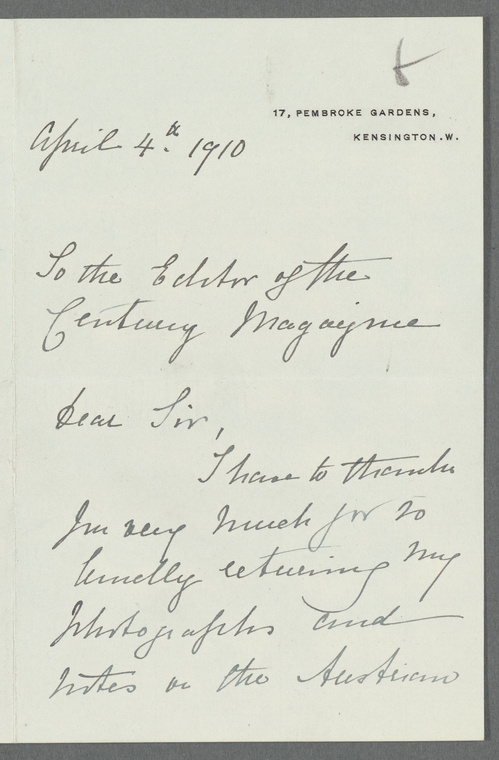 17, PEMBROKE GARDENS,
KENSINGTON.W.
April 4th. 1910
To the Editor of the
Century Magazine
Dear Sir,
I have to thank
you very much for so
kindly returning my
photographs and
notes on the Austrian